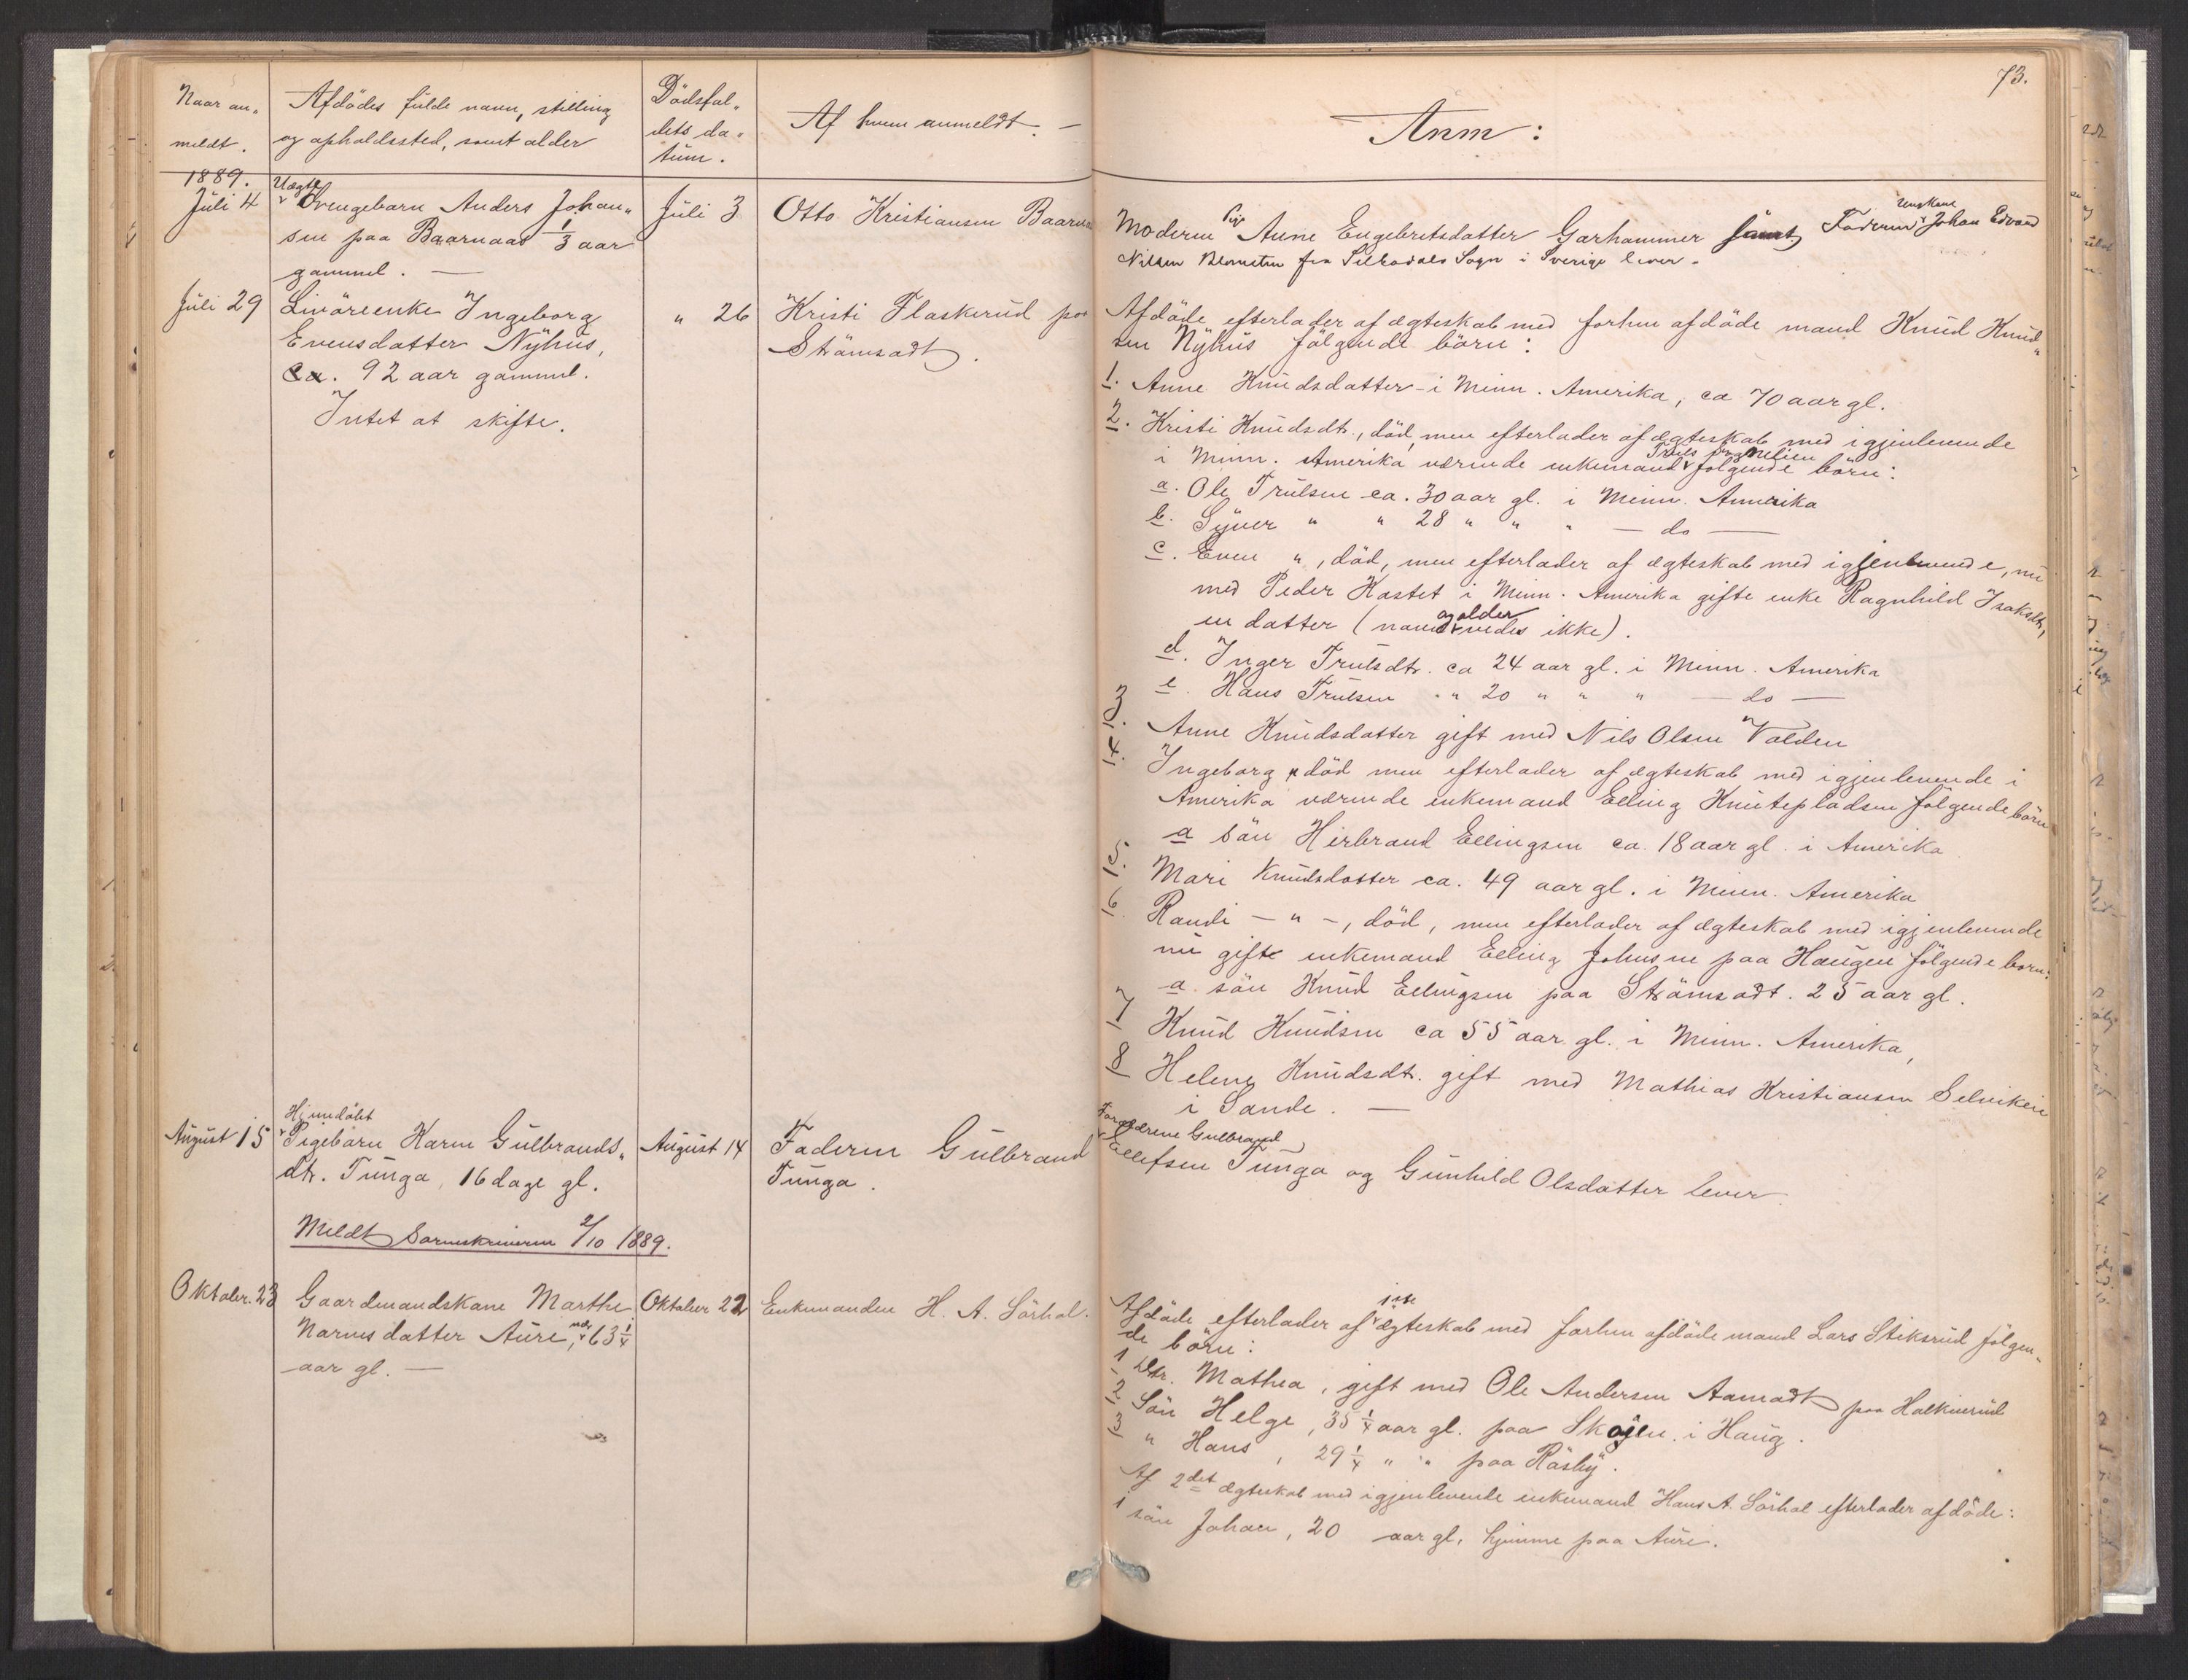 73.
Naar an-
meldt.
Afdödes fulde navn, stilling
og opholdssted, samt alder
Dödsfal-
dets da-
tum.
Af hvem anmeldt. —
Anm:
1889.
Juli 4
Uægte
Drengebarn Anders Johan-
sen paa Baarnaas 1/3 aar
gammel. —
Juli 3
Otto Kristiansen
Moderen Pige Anne Engebretsdatter Garhammer samt Faderen Ungkarl Johan Edvard
Nilsen fra Silbodals Sogn i Sverige lever.
Juli 29
Livöreenke Ingeborg
Evensdatter Nyhus,
ca. 92 aar gammel.
Intet at skifte.
" 26
Kristi Flaskerud paa
Strömsodt.
Afdöde efterlader af ægteskab med forhen afdöde mand Knud Knud-
sen Nyhus fölgende börn:
1. Anne Knudsdatter i Minn. Amerika, ca 70 aar gl.
2. Kristi Knudsdt., död, men efterlader af ægteskab med igjenlevende
i Minn. Amerika værende enkemand Truls fölgende börn:
a. Ole Trulsen ca. 30 aar gl. i Minn. Amerika
b. Syver " " 28 " " " — do —
c. Even ", död, men efterlader af ægteskab med igjenlevende, nu
med Peder Hastet i Minn. Amerika gifte enke Ragnhild Isaksdt,
en datter (navn og alder vides ikke).
d. Inger Trulsdt. ca 24 aar gl. i Minn. Amerika
e. Hans Trulsen " 20 " " " — do —
3. Anne Knudsdatter gift med Nils Olsen Volden
4. Ingeborg död men efterlader af ægteskab med igjenlevende i
Amerika værende enkemand Elling Knutepladsen fölgende börn
a sön Herbrand Ellingsen ca. 18 aar gl. i Amerika
5. Mari Knudsdatter ca. 49 aar gl. i Minn. Amerika
6. Randi — " —, död, men efterlader af ægteskab med igjenlevende
nu gifte enkemand Elling Johnsen paa Haugen fölgende born:
a. sön Knud Ellingsen paa Strömsodt. 25 aar gl.
7 Knud Knudsen ca 55 aar gl. i Minn. Amerika,
8 Helene Knudsdt. gift med Mathias Kristiansen Selviken
i Sande. —
August 15
Hjemdöbt
Pigebarn Karen Gulbrands-
dt. Tunga, 16 dage gl.
August 14
Faderen Gulbrand
Tunga.
Forældrene Gulbrand
Ellefsen Tunga og Gunhild Olsdatter lever
Meldt Sorenskriveren 2/10 1889.
Oktober. 23
Gaardmandskone Marthe
Narvesdatter Aure, 63 1/4
aar gl. —
Oktober 22
Enkemanden H. A. Sörhol.
Afdöde efterlader af 1ste ægteskab med forhen afdöde mand Lars Stiksrud fölgen-
de börn:
1 Dtr. Mathea, gift med Ole Andersen Aamodt paa Halkinrud
2 Sön Helge, 35 1/4 aar gl. paa Skojen i Haug.
3 " Hans, 29 1/4 " " paa Råsby.
Af 2det ægteskab med igjenlevende enkemand Hans A. Sörhol efterlader afdöde:
1 sön Johan, 20 aar gl. hjemme paa Aure.